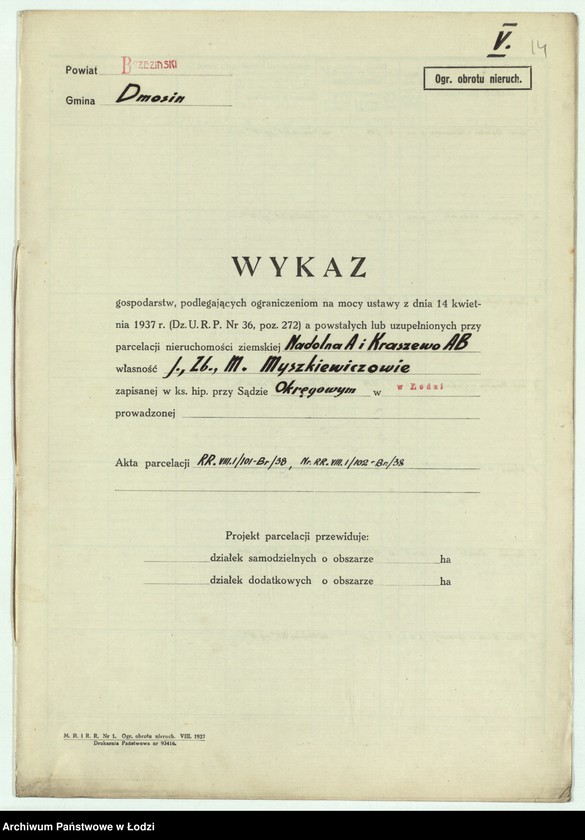 V. 14
Powiat Brzeziński
Ogr. obrotu nieruch.
Gmina Dmosin
WYKAZ
gospodarstw, podlegających ograniczeniom na mocy ustawy z dnia 14 kwiet-
nia 1937 r. (Dz. U. R. P. Nr 36, poz. 272) a powstałych lub uzupełnionych przy
parcelacji nieruchomości ziemskiej Nadolna A i Kraszewo AB
własność J., Zb., M. Myszkiewiczowie
zapisanej w ks. hip. przy Sądzie Okręgowym w w Łodzi
prowadzonej
Akta parcelacji RR. VIII. 1/101-Br/38, Nr. RR. VIII. 1/102-Br/38
Projekt parcelacji przewiduje:
działek samodzielnych o obszarze ha
działek dodatkowych o obszarze ha
M. R. i R. R. Nr 1. Ogr. obrotu nieruch. VIII. 1937
Drukarnia Państwowa nr 93416.
Archiwum Państwowe w Łodzi